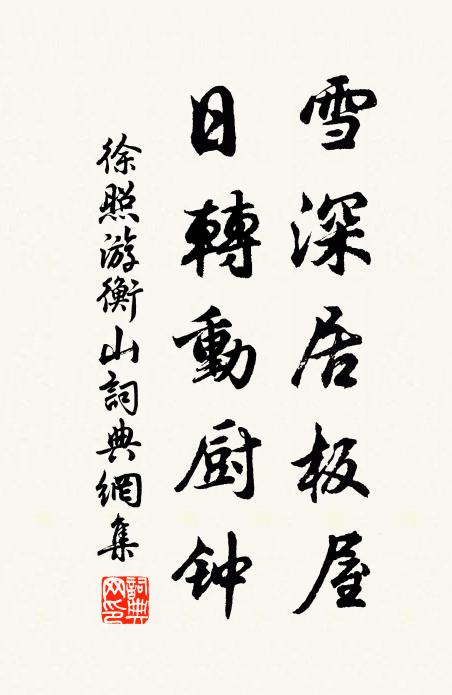 雪深居板屋
日轉動厨钟
徐照游衡山詞典網集
詞典網印